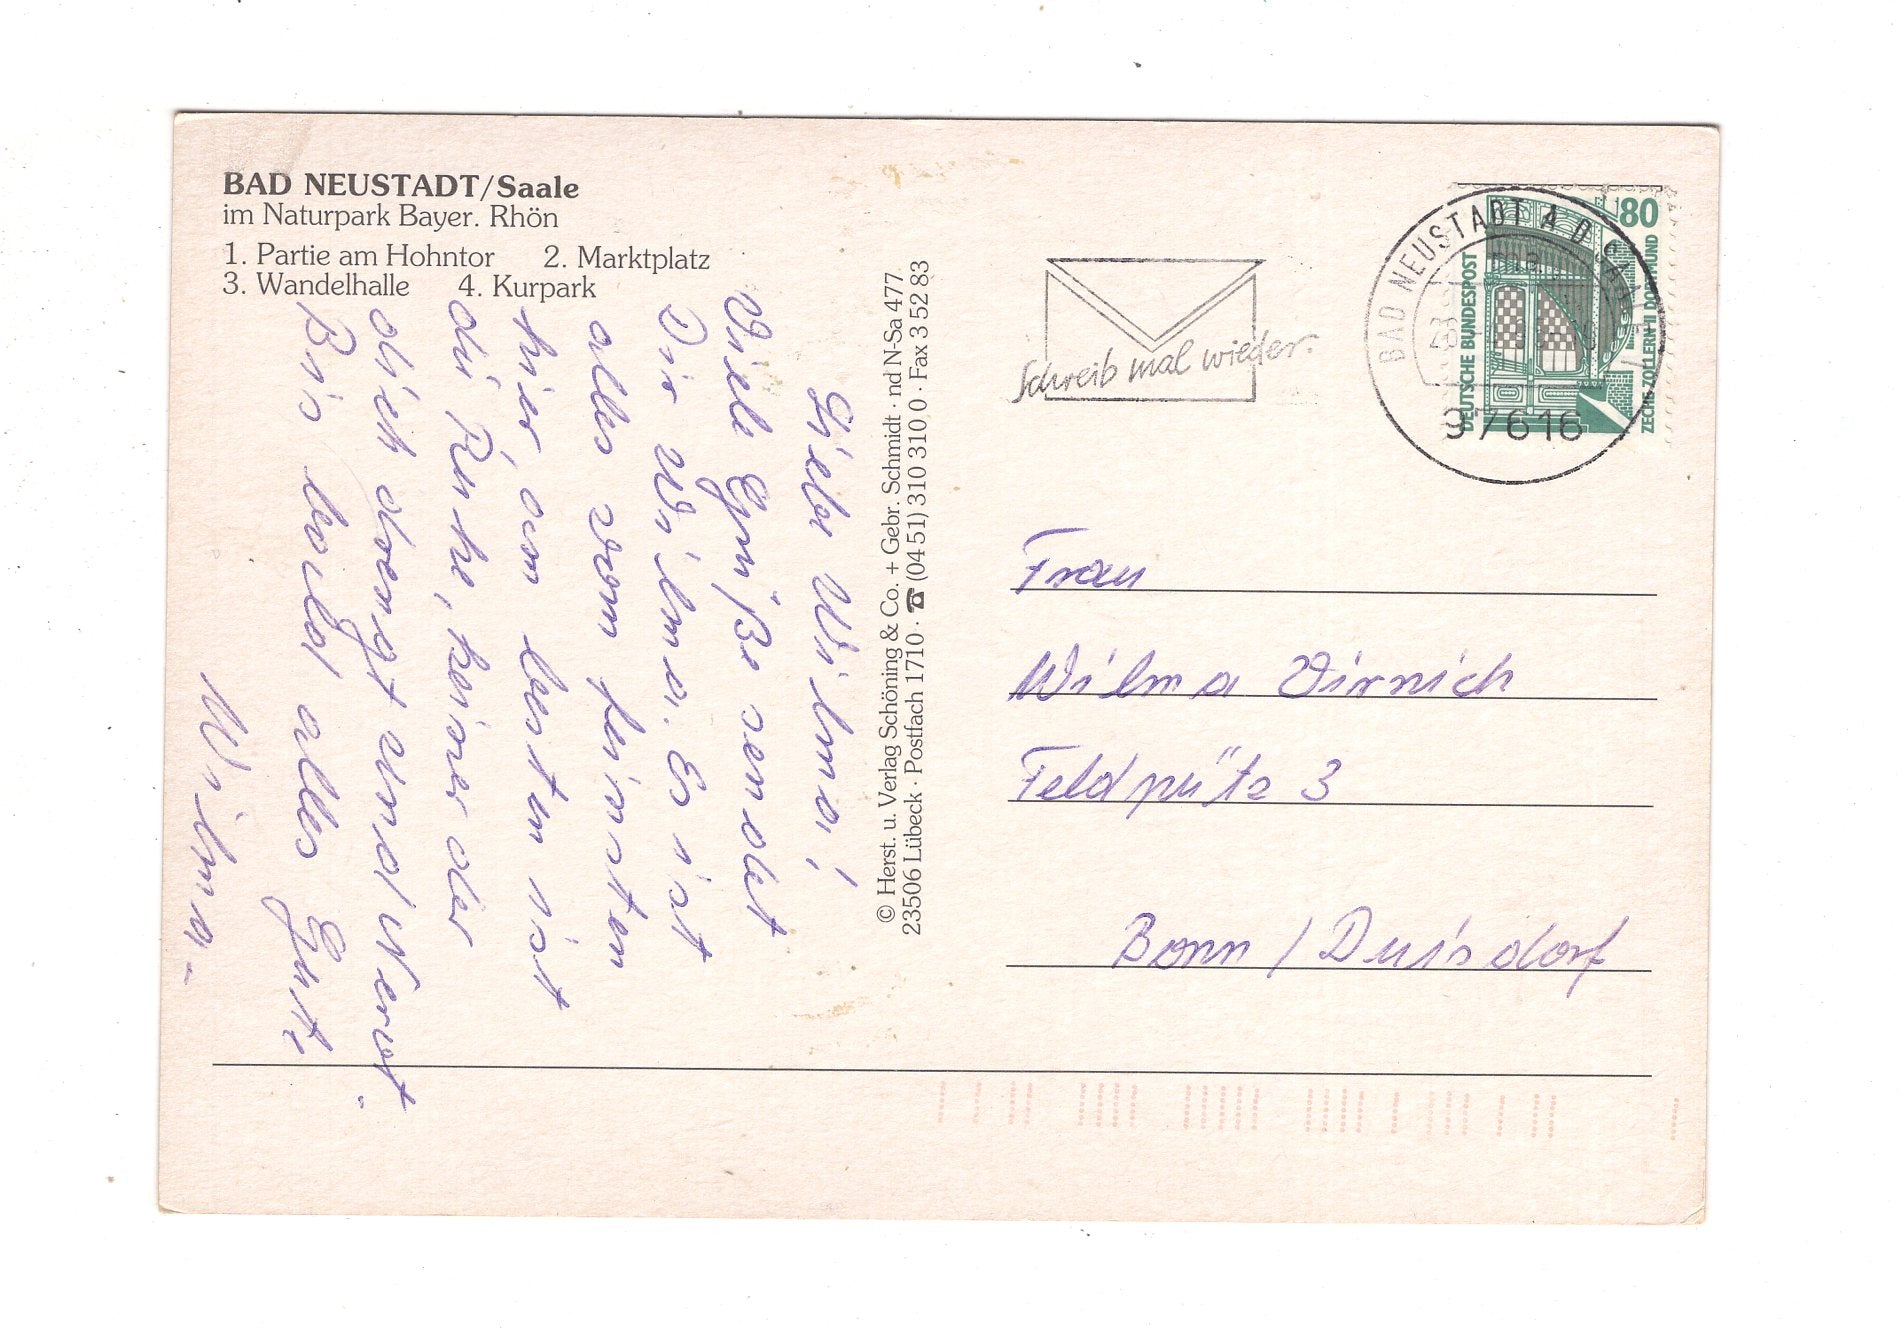 BAD NEUSTADT/Saale
im Naturpark Bayer. Rhön
1. Partie am Hohntor 2. Marktplatz
3. Wandelhalle 4. Kurpark
Liebe Wilma!
Viele Grüße sendet
Dir Wilma. Es ist
alles vom feinsten
hier, am besten ist
die Ruhe, keiner der
dich drengt und Nervt.
Bis bald alles Gute
Wilma.-
© Herst. u. Verlag Schöning & Co. + Gebr. Schmidt · nd N-Sa 477
23506 Lübeck · Postfach 1710 · ☎ (04 51) 310 310 0 · Fax 3 52 83
Schreib mal wieder.
BAD NEUSTADT A D SAALE
97616
80
DEUTSCHE BUNDESPOST
ZECHE ZOLLERN II DORTMUND
Frau
Wilma Dirnich
Feldpütz 3
Bonn / Duisdorf